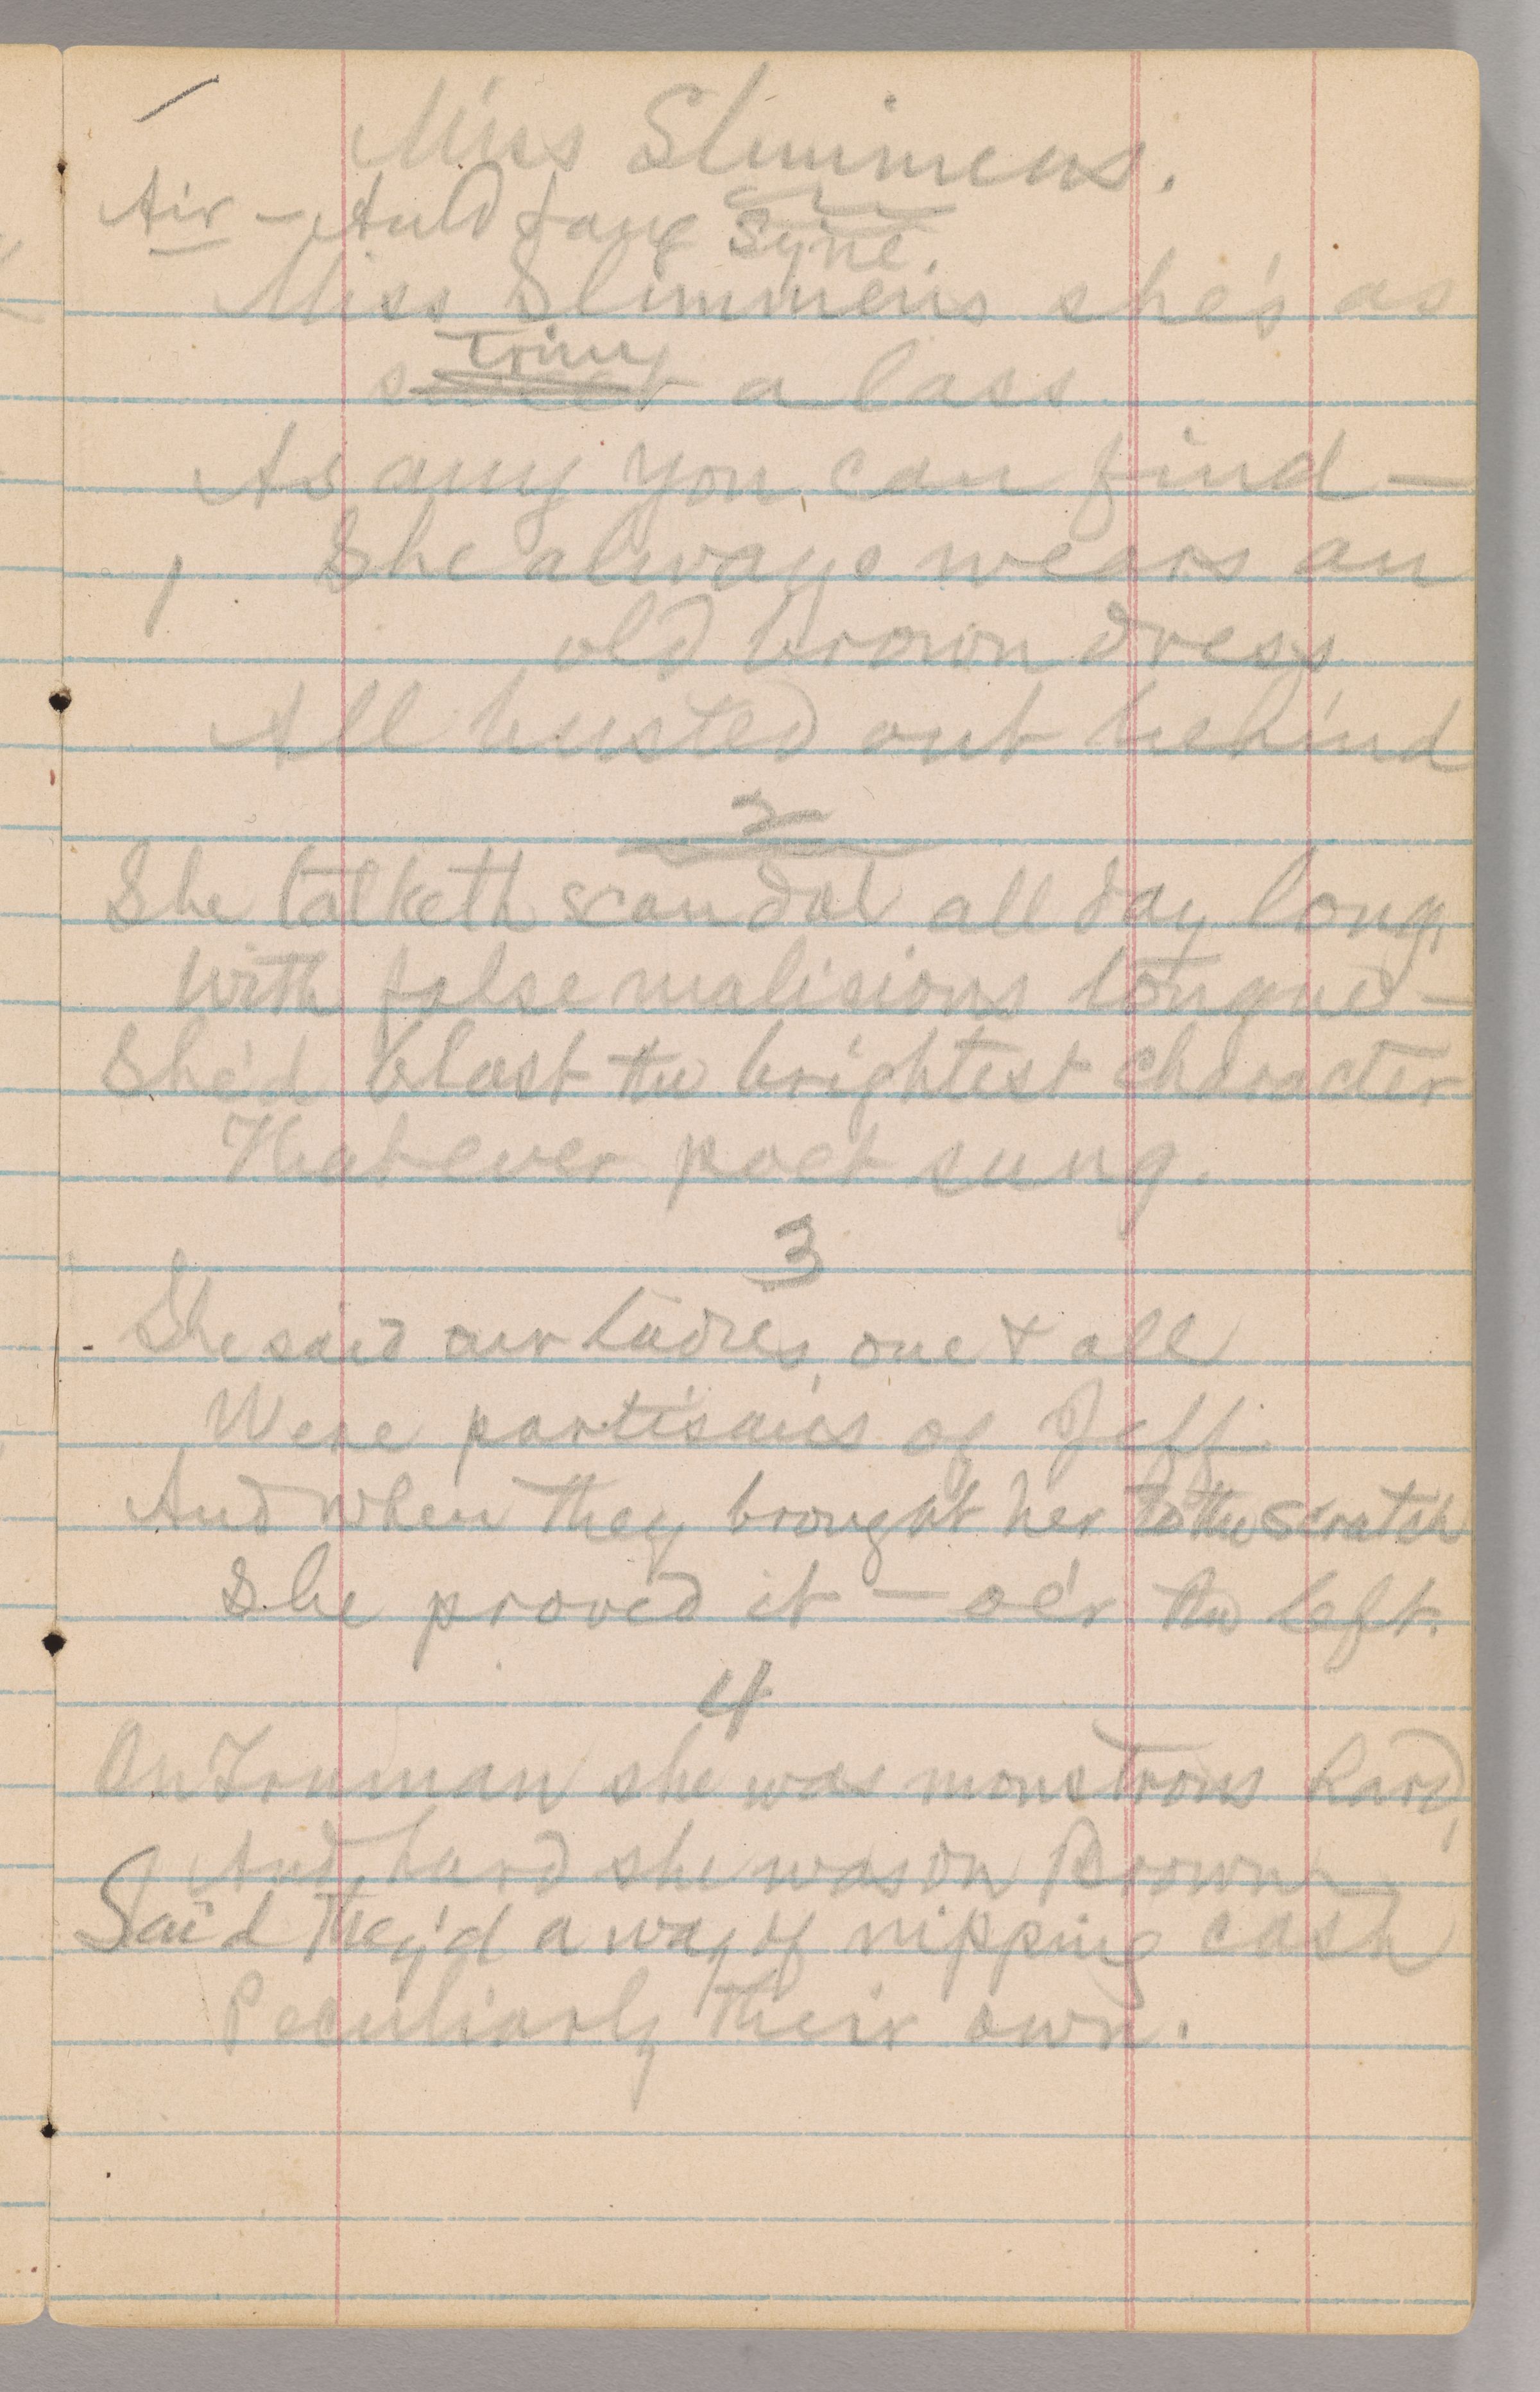 Miss Slimmens.
Air - Auld Lang Syne.
Miss Slimmens she's as
trim
sweet a lass
As any you can find —
She always wears an
old brown dress
All busted out behind
2
She talketh scandal all day long,
With false malicious tongue —
She'd blast the brightest character
That ever poet sung.
3
She said our ladies, one & all
Were partisans of Jeff.
And when they brought her to the scratch
She proved it — oe'r the left.
4
On Truman she was monstrous hard,
And hard she was on Brown
Said they'd a way of nipping cash
Peculiarly their own.